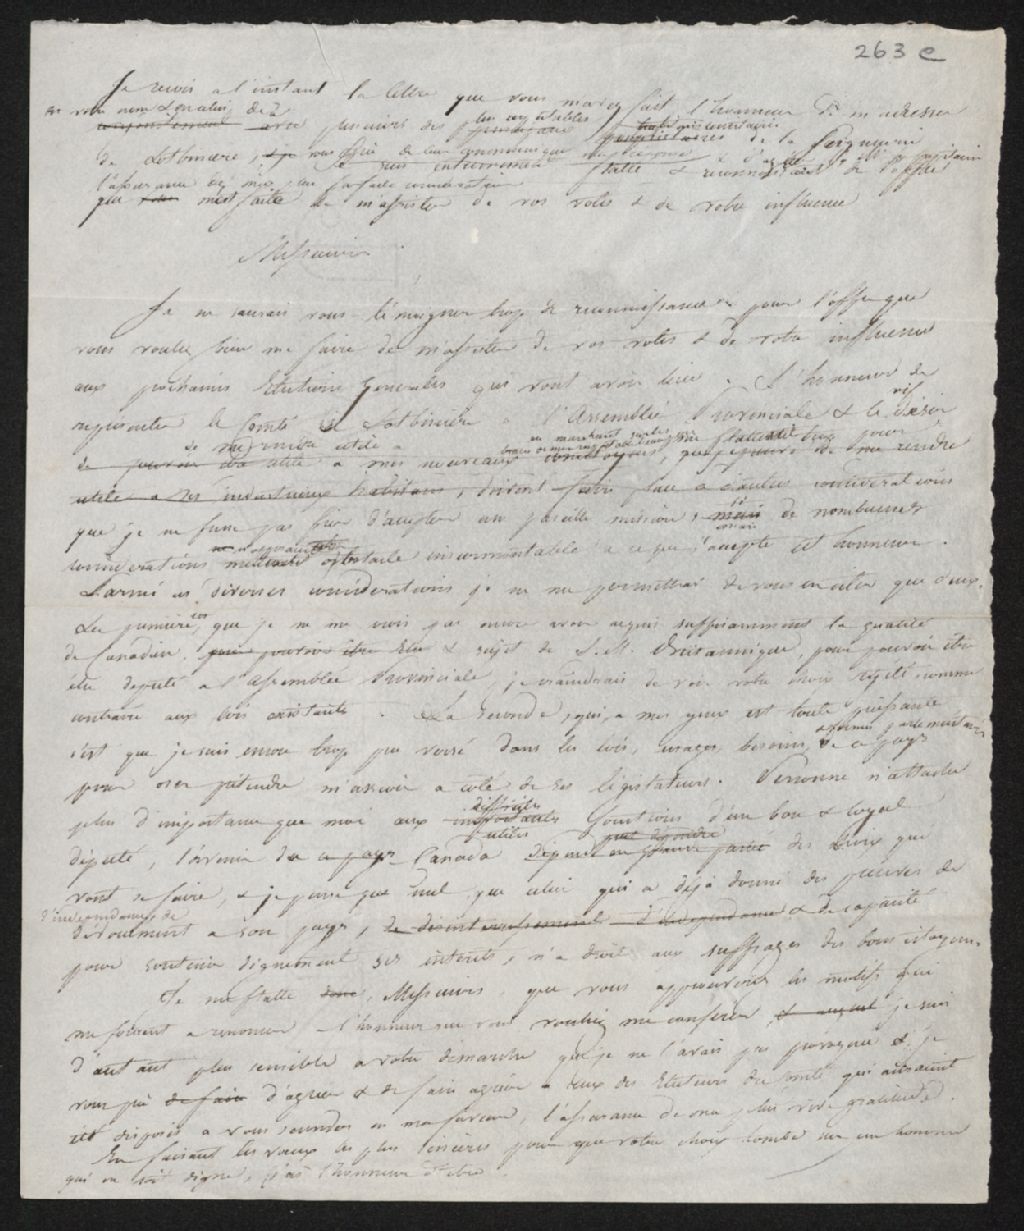 263 e
Je reçois à l'instant la lettre que vous m'avez fait l'honneur de m'adresser
en votre nom & en celui de
conjointement avec plusieurs des plus respectables propriétaires de la Seigneurie
de Lotbiniere,
l'assurance de ma plus parfaite considération
que m'est faite de m'assister de vos votes & de votre influence
Messieurs
Je ne saurais vous témoigner trop de reconnaissance pour l'offre que
vous voulez bien me faire de m'assister de vos votes & de votre influence
aux prochaines Elections Generales qui vont avoir lieu. L'honneur de
représenter le Comté de Lotbiniere à l'Assemblée Provinciale & le vif désir
de pouvoir être utile à mes nouveaux concitoyens, pour
utile à ses industrieux habitans, doivent faire face à d'autres considérations
que je ne fusse pas fier d'accepter une pareille mission, mais de nombreuses
considérations mettent obstacle insurmontable à ce que j'accepte cet honneur.
Parmi ces diverses considérations je ne me permettrai de vous en citer que deux.
La première, c'est que je ne me crois pas encore avoir acquis suffisamment la qualité
de Canadien & sujet de S. M. Britannique, pour pouvoir être
élu député à l'Assemblée Provinciale, je craindrais de voir votre choix rejeté comme
contraire aux lois existantes. La Seconde, qui, à mes yeux est toute puissante
c'est que je suis encore trop peu versé dans les lois, usages, besoins, & formes parlementaires de ce pays
pour oser prétendre m'asseoir à coté de ses législateurs. Personne n'attache
plus d'importance que moi aux importantes difficiles fonctions d'un bon & loyal
député, l'avenir du ce pays Canada des choix que
vont se faire, & je pense que nul, que celui qui a déjà donné des preuves de
d'indépendance, de
dévouement à son pays, de désintéressement d'indépendance & de capacité
pour soutenir dignement ses intérêts, n'a droit aux suffrages des bons citoyens.
Je me flatte donc, Messieurs, que vous apprécierez les motifs qui
me forcent à renoncer à l'honneur que vous vouliez me conférer, je suis
d'autant plus sensible à votre démarche que je ne l'avais pas provoquée & je
vous prie de faire d'agréer & de faire agréer à ceux des Electeurs du Comté qui auraient
été disposés à vous seconder en ma faveur, l'assurance de ma plus vive gratitude.
En faisant les vœux les plus sincères pour que votre choix tombe sur un homme
qui en soit digne, j'ai l'honneur d'être